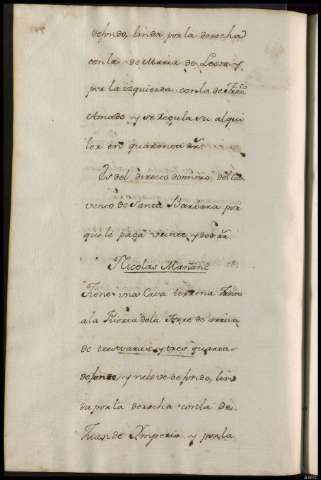 de fondo, linda por la derecha
con la de Maria de Leon y
por la izquierda con la de Fran.co
Amado y se regula su alqui
ler en quarenta rr.
Es del directo dominio del Con
vento de Santa Barbara por
que le paga veinte y dos rr.
Nicolas Mañane
Tiene una Casa terrena
a la Puerta de la Torre de arriva
de tres varas y tres quartas
de frente, y nueve de fondo, lin
da por la derecha con la de
Juan de Ymperio y por la